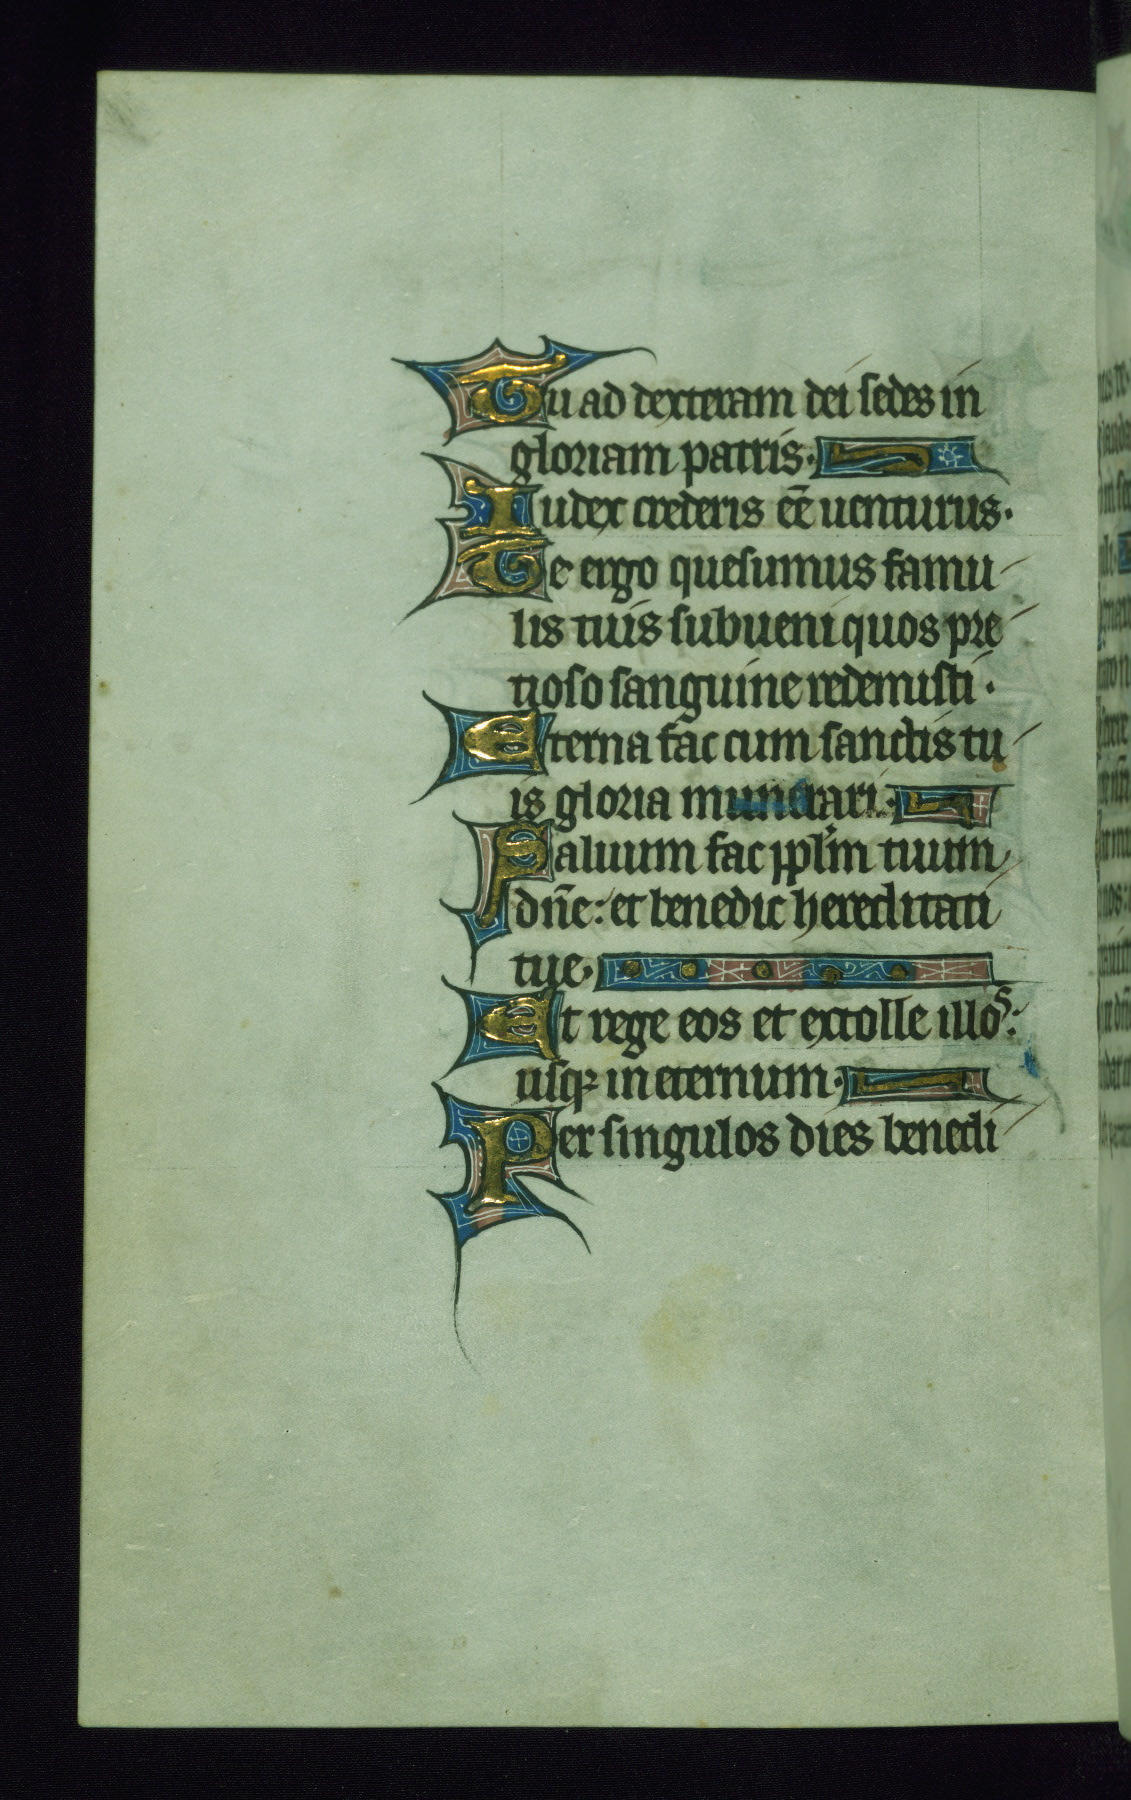 Tu ad dexteram dei sedes in
gloriam patris.
Iudex crederis ēē uenturus.
Te ergo quesumus famu
lis tuis subueni quos pre
tioso sanguine redemisti.
Eterna fac cum sanctis tu
is gloria munerari.
Saluum fac pplm̄ tuum
dn̄e: et benedic hereditati
tue.
Et rege eos et extolle illos:
usqꝫ in eternum.
Per singulos dies benedi